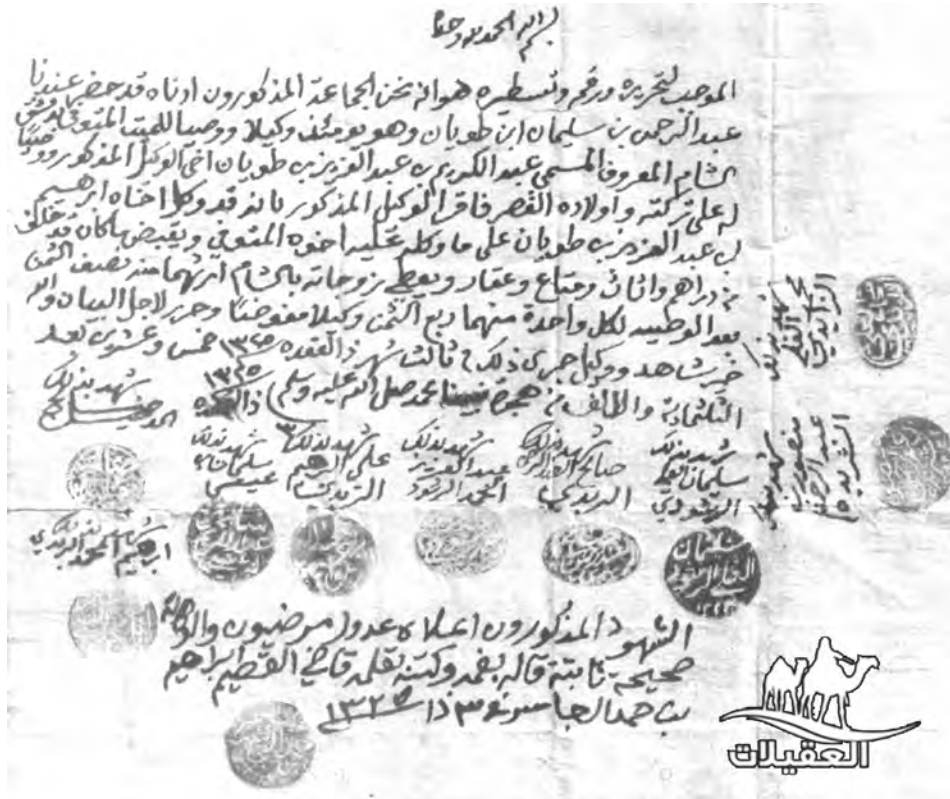 بسم الله الحمد لله وحده
الموجب لتحريره ورقمه وتسطيره هو انه نحن الجماعة المذكورون ادناه قد حضر عندنا
عبدالرحمن بن سليمان ابن طويان وهو يومئذ وكيلا ووصيا للميت المتوفى
بالشام المعروف المسمى عبدالكريم بن عبدالعزيز بن طويان اخي الوكيل المذكور
له على تركته واولاده القصر فاقر الوكيل المذكور بانه قد وكل اخاه ابرهيم
بن عبدالعزيز بن طويان على ما وكله عليه اخوه المتوفى ويقبض ما كان قد خلف
من دراهم واثاث ومتاع وعقار ويعطي زوجاته بالشام ارثهما منه نصف الثمن
بعد الوصية لكل واحدة منهما ربع الثمن وكيلا مفوضا وحرر لاجل البيان والله
خير شاهد ووكيل جرى ذلك في ثالث شهر ذالقعده ١٣٢٥ خمس وعشرون بعد
الثلثماية والالف من هجرة نبينا محمد صلى الله عليه وسلم
شهد بذلك
شهد بذلك
سليمان
الرشودي
شهد بذلك
صالح
شهد بذلك
عبدالعزيز
الحمود
شهد بذلك
علي
شهد بذلك
سليمان
عيسى
ابرهيم
الشهود المذكورون اعلاه عدول مرضيون والوكالة
صحيحة ثابتة قاله بفمه وكتبه بقلمه قاضي القصيم ابراهيم
بن حمد الجاسر في ٣ ذا ١٣٢٥
العقيلات